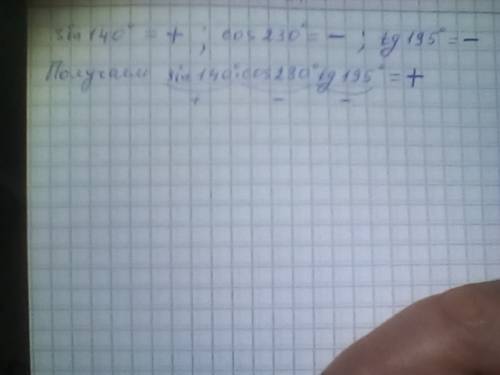 sin 140° = + ; cos 230° = - ; tg 195° = -
Получаем sin 140°·cos 230° tg 195° = +
+ - -